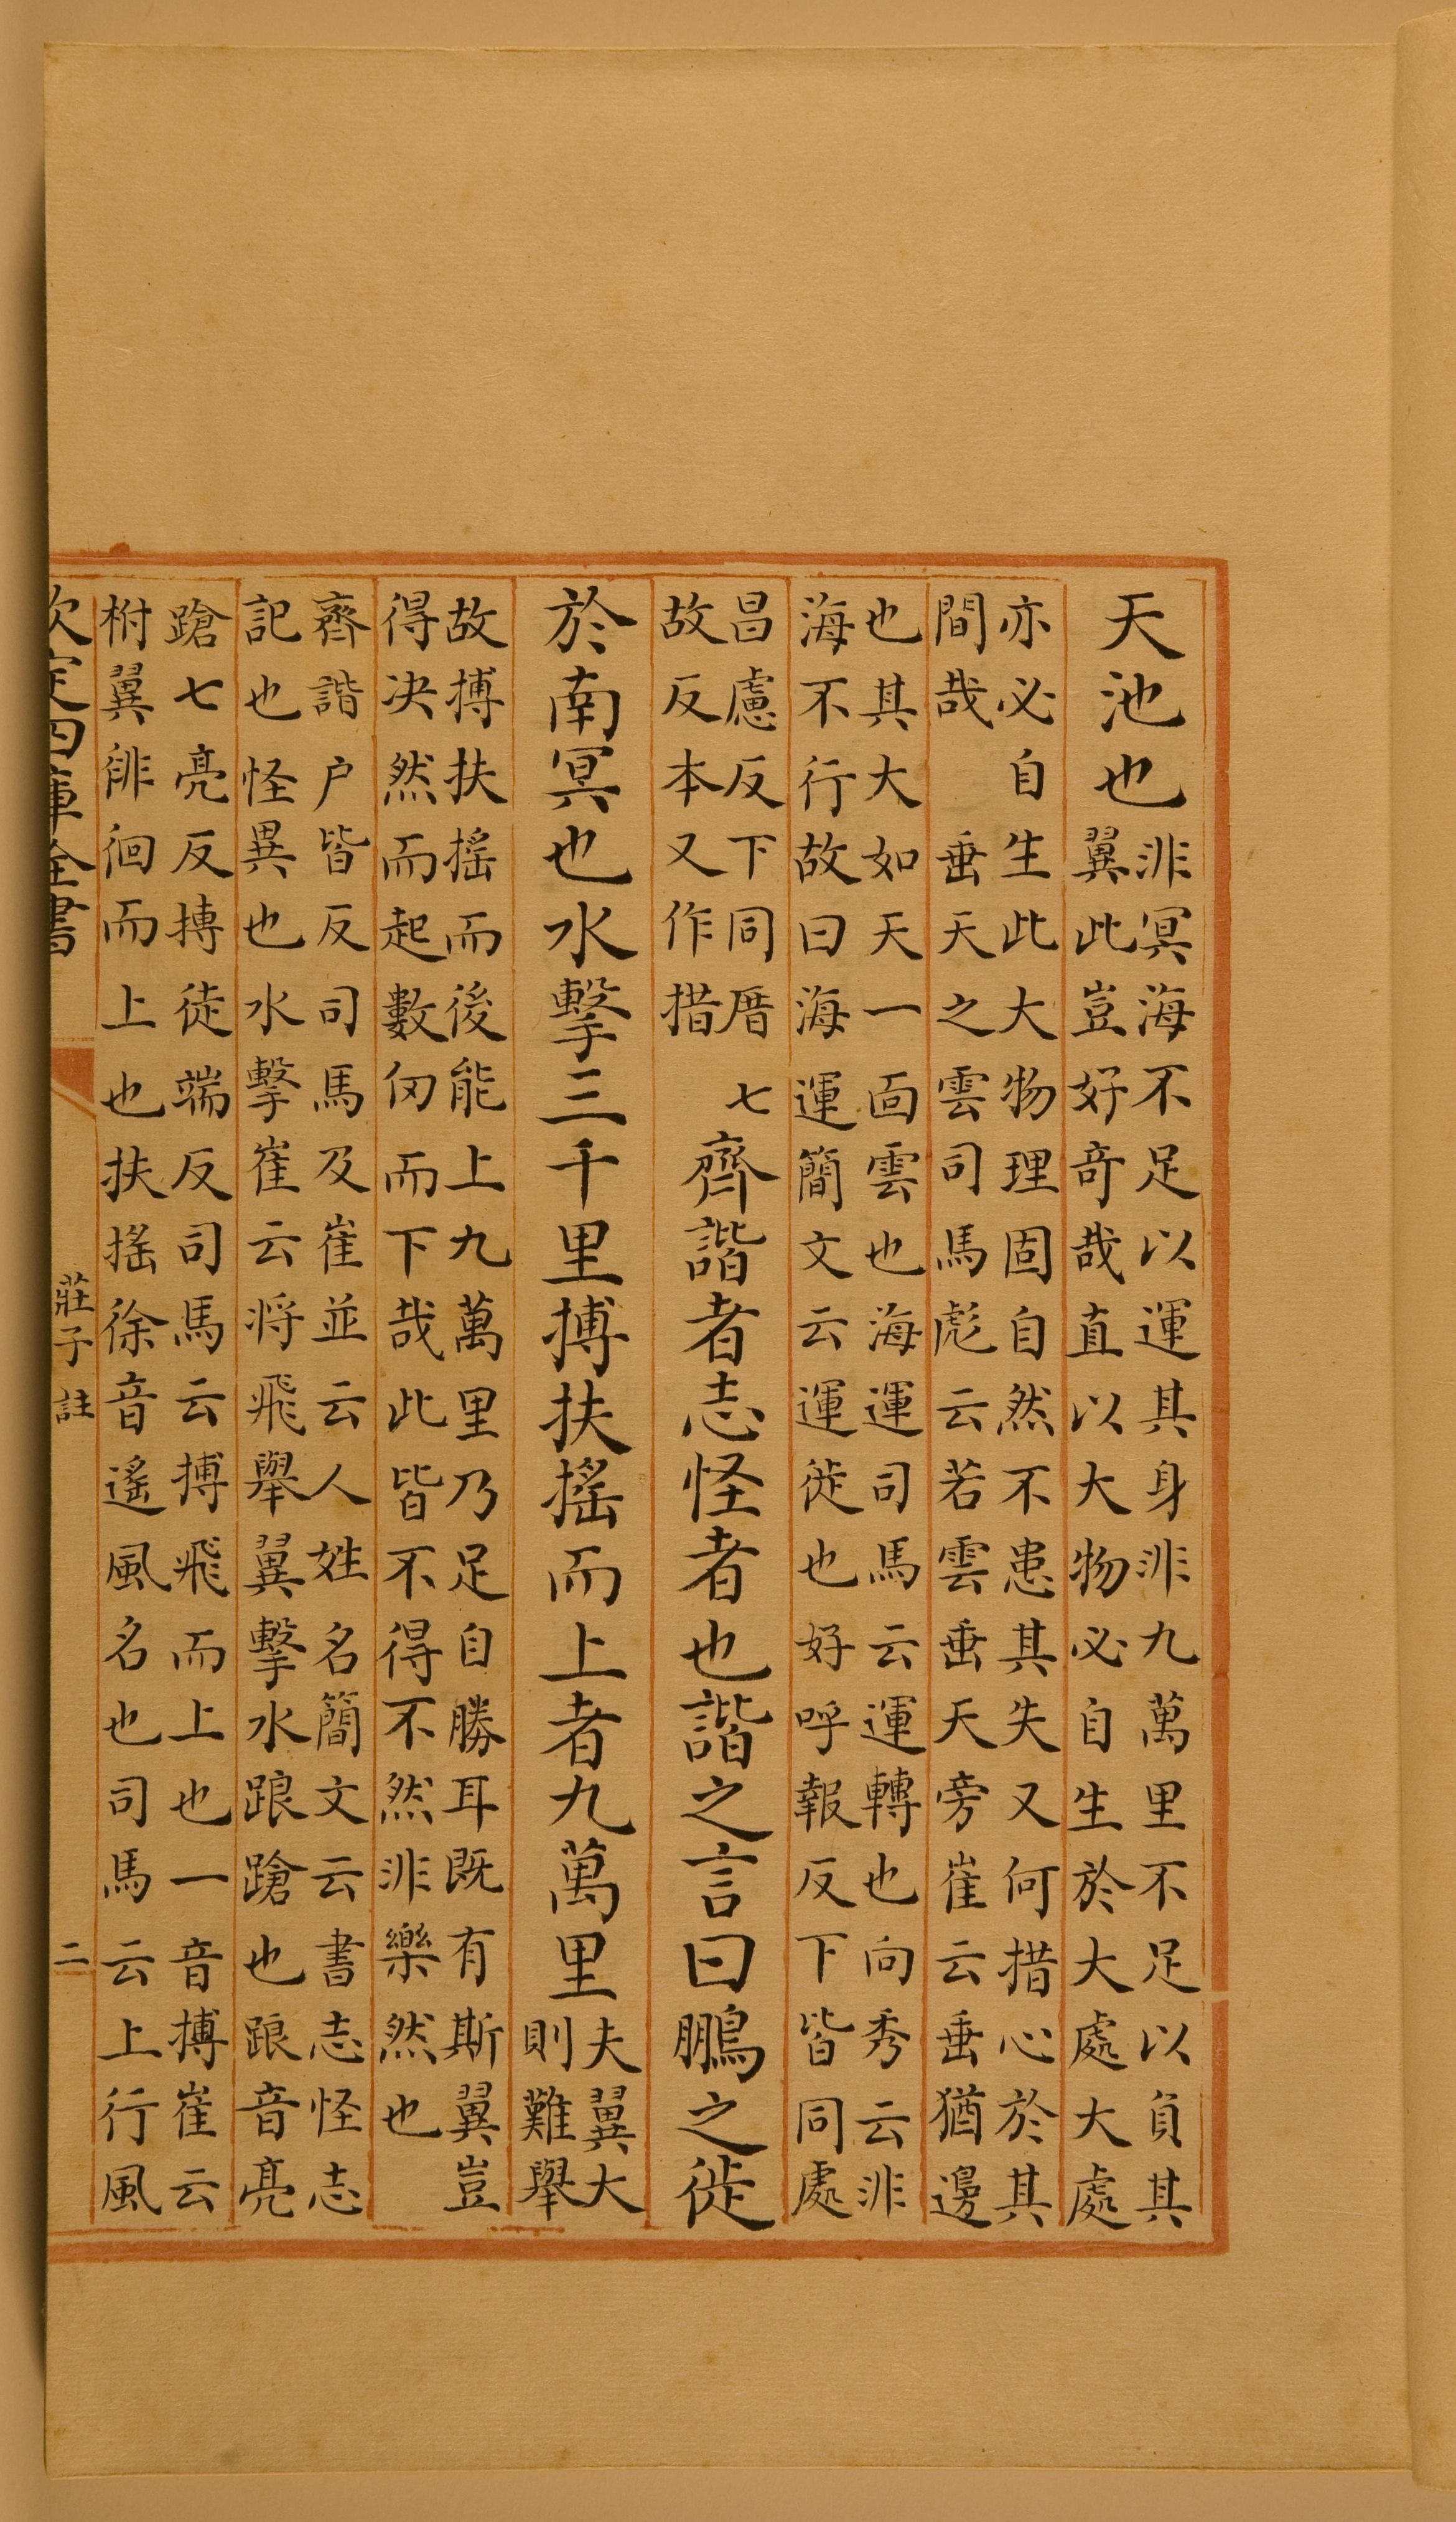 天池也
非冥海不足以運其身非九萬里不足以負其
翼此豈好奇哉直以大物必自生於大處大處
亦必自生此大物理固自然不患其失又何措心於其
間哉　垂天之雲司馬彪云若雲垂天旁崔云垂猶邊
也其大如天一面雲也海運司馬云運轉也向秀云非
海不行故曰海運簡文云運徙也好呼報反下皆同處
昌慮反下同厝七
故反本又作措
齊諧者志怪者也諧之言曰鵬之徙
於南冥也水擊三千里搏扶摇而上者九萬里
夫翼大
則難舉
故搏扶摇而後能上九萬里乃足自勝耳既有斯翼豈
得决然而起數仞而下哉此皆不得不然非樂然也
齊諧户皆反司馬及崔並云人姓名簡文云書志怪志
記也怪異也水擊崔云将飛舉翼擊水踉蹌也踉音亮
蹌七亮反搏徒端反司馬云搏飛而上也一音搏崔云
柎翼徘徊而上也扶摇徐音遥風名也司馬云上行風
欽定四庫全書
莊子註
二